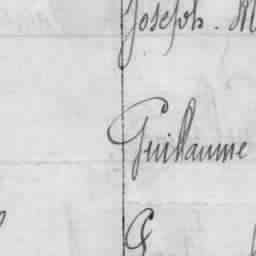 Joseph. M
Guillaume
G